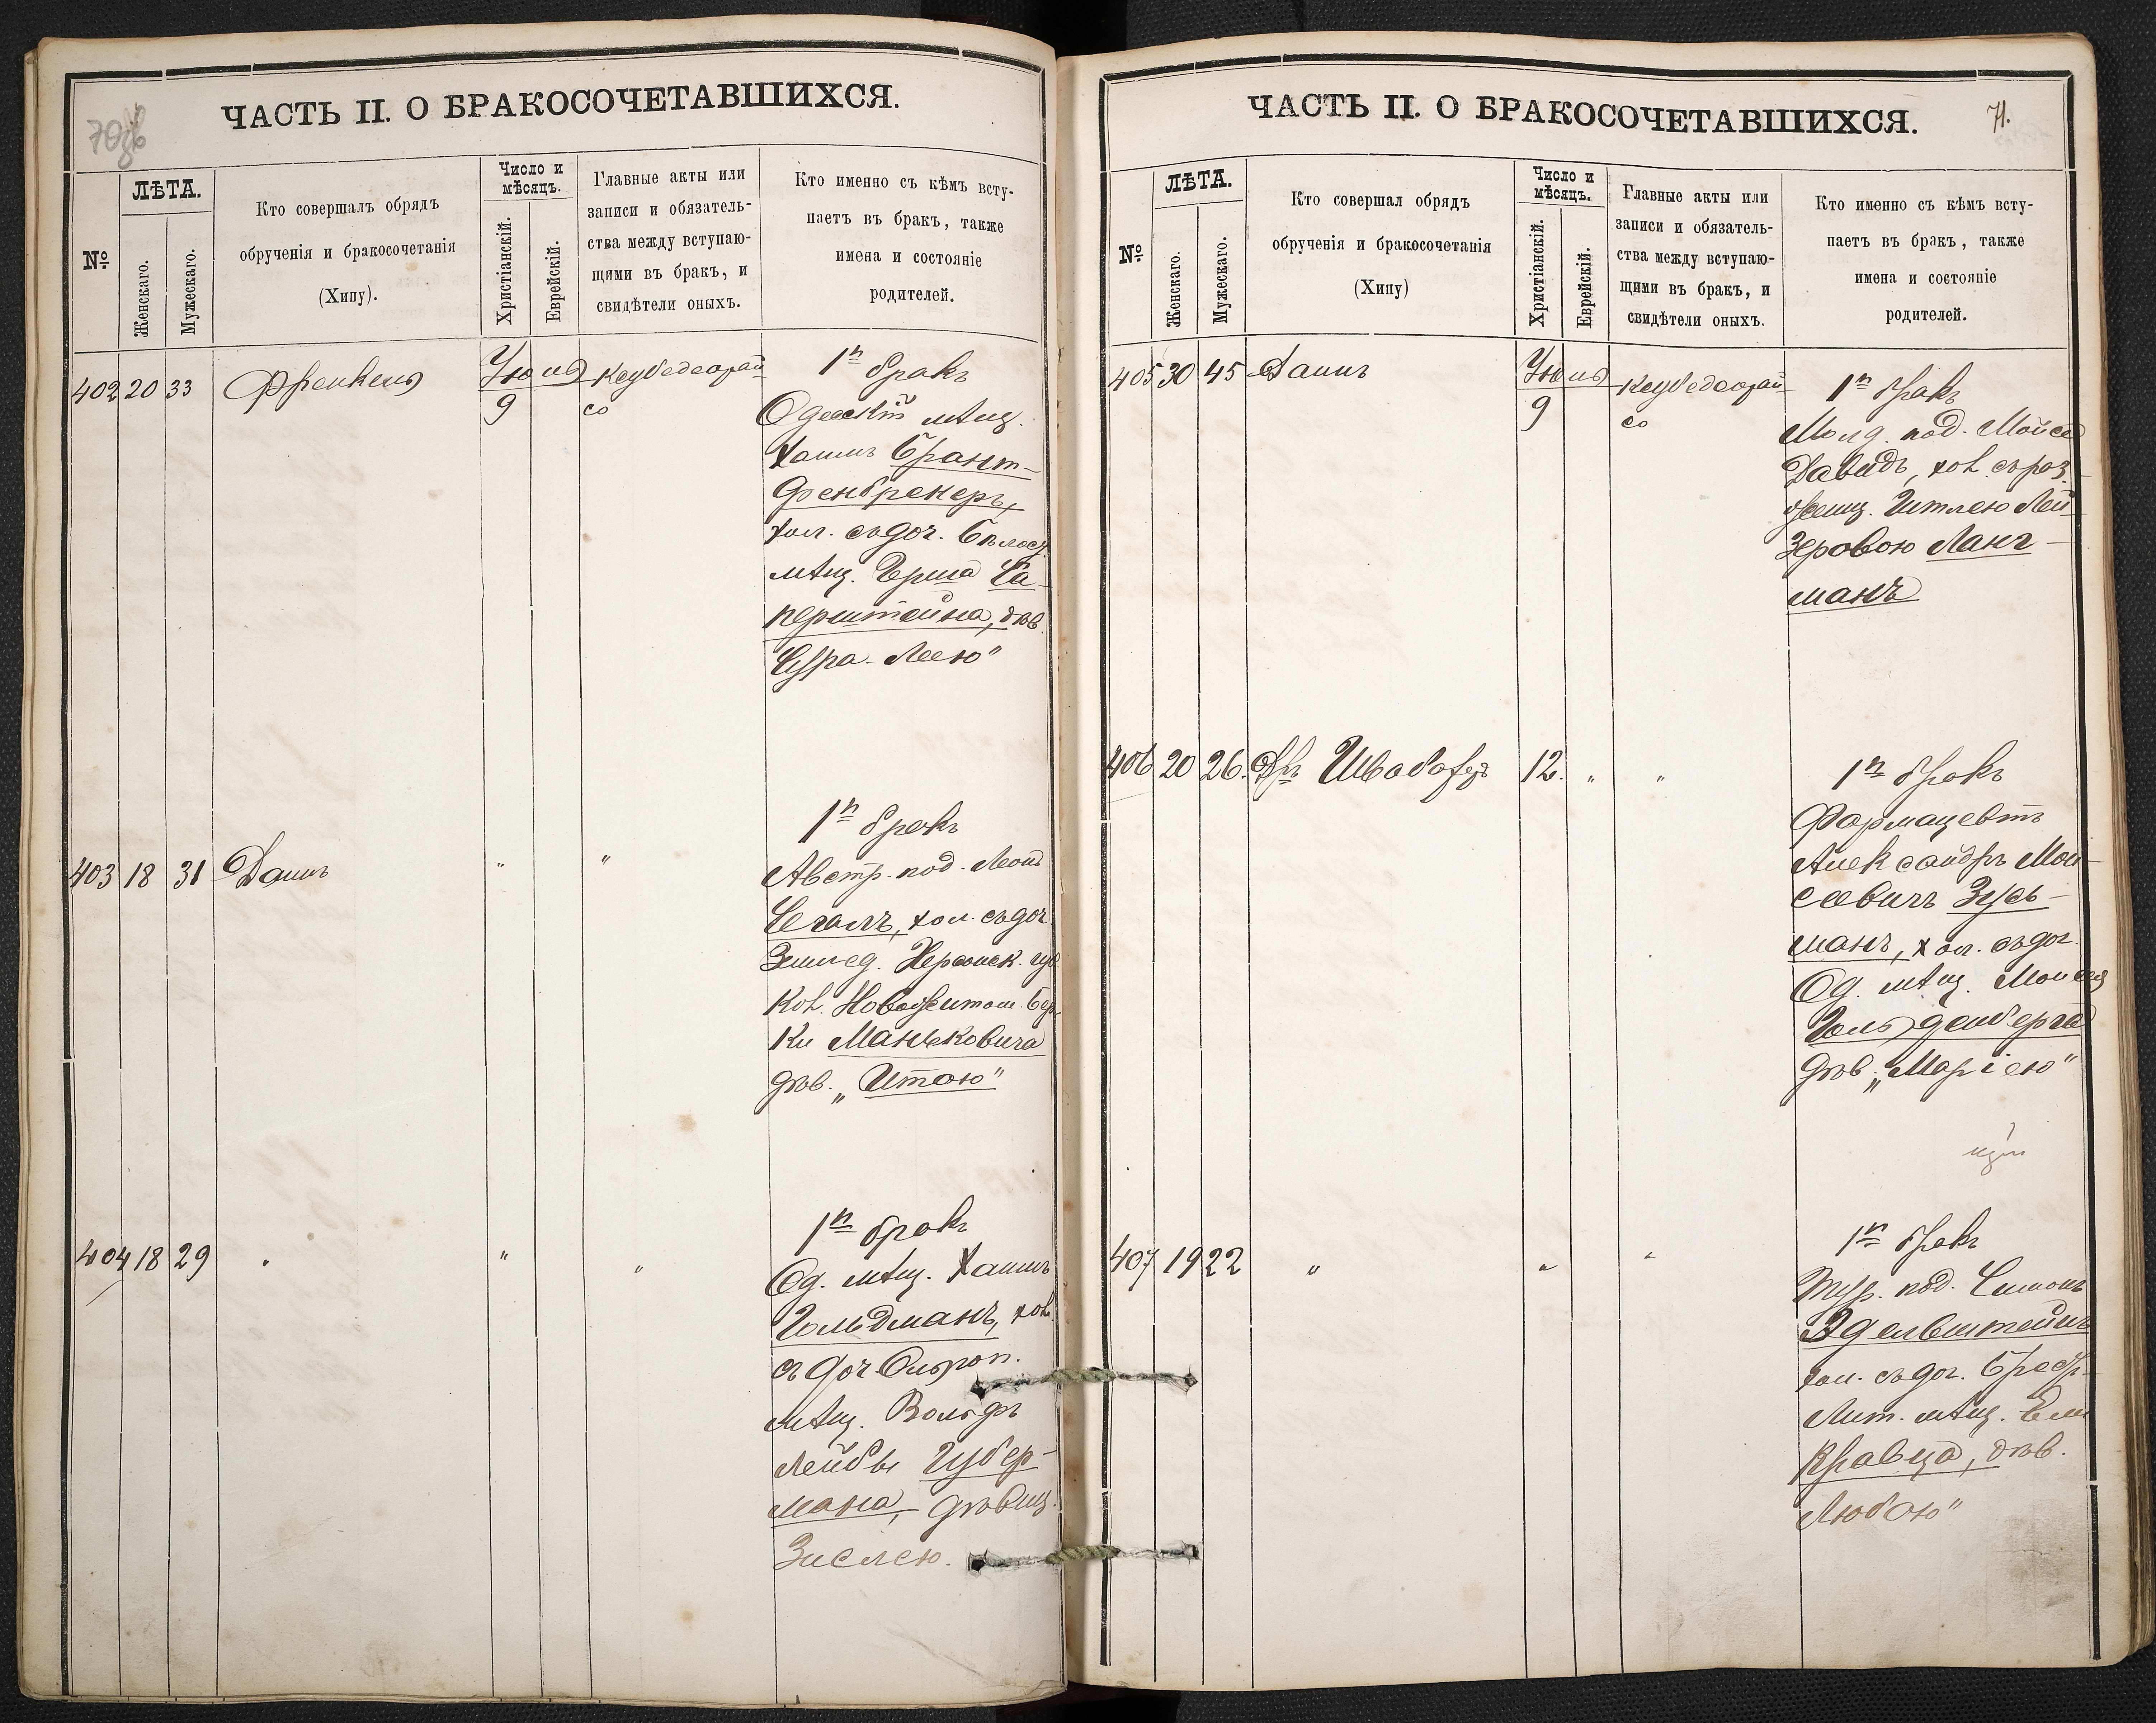 ЧАСТЬ II. О БРАКОСОЧЕТАВШИХСЯ.
№
ЛѢТА.
Женскаго.
Мужескаго.
Кто совершалъ обрядъ
обрученія и бракосочетанія
(Хипу).
Число и
мѣсяцъ.
Христіанскій.
Еврейскій.
Главные акты или
записи и обязатель-
ства между вступаю-
щими въ бракъ, и
свидѣтели оныхъ.
Кто именно съ кѣмъ всту-
паетъ въ бракъ, также
имена и состояніе
родителей.
402 20 33 Френкель
9
со
1й бракъ
Одесскій мѣщ.
Хаимъ Брант-
Фенбренеръ,
хол. съ доч. Бѣлоц.
мѣщ. Герша Са-
перштейна, дѣв.
Сура-Леею"
403 18 31 Даинъ " "
1й бракъ
Австр. под. Леонъ
Сегалъ, хол. съ доч.
Землед. Херсонск. губ.
Кол. Новожитом. Бер-
ки Маньковича
дѣв. „Итою"
404 18 29 " " "
1й бракъ
Од. мѣщ. Хаимъ
Гольдманъ, хол.
съ доч.
мѣщ. Вольфъ
Лейбы Губер-
мана, дѣвиц.
Зислею.
ЧАСТЬ II. О БРАКОСОЧЕТАВШИХСЯ.
71.
№
ЛѢТА.
Женскаго.
Мужескаго.
Кто совершал обрядъ
обрученія и бракосочетанія
(Хипу)
Число и
мѣсяцъ.
Христіанскій.
Еврейскій.
Главные акты или
записи и обязатель-
ства между вступаю-
щими въ бракъ, и
свидѣтели оныхъ.
Кто именно съ кѣмъ всту-
паетъ въ бракъ, также
имена и состояніе
родителей.
405 30 45 Даинъ
9
со
1й бракъ
Молд. под. Мойсей
Давидъ, хол. съ роз-
жениц. Итлею Лей-
Зеровою Ланг-
манъ
406 20 26. Дръ Швабахеръ 12. " "
1й бракъ
Фармацевтъ
Александръ Мои-
сеевичъ Зусь-
манъ, хол. съ доч.
Од. мѣщ. Моисея
Гольденберга
дѣв. „Маріею"
407 19 22 " " "
1й бракъ
Тур. под. Симонъ
Эдельштейнъ
хол. съ доч.
Лит. мѣщ.
Кравца, дѣв.
Любою"